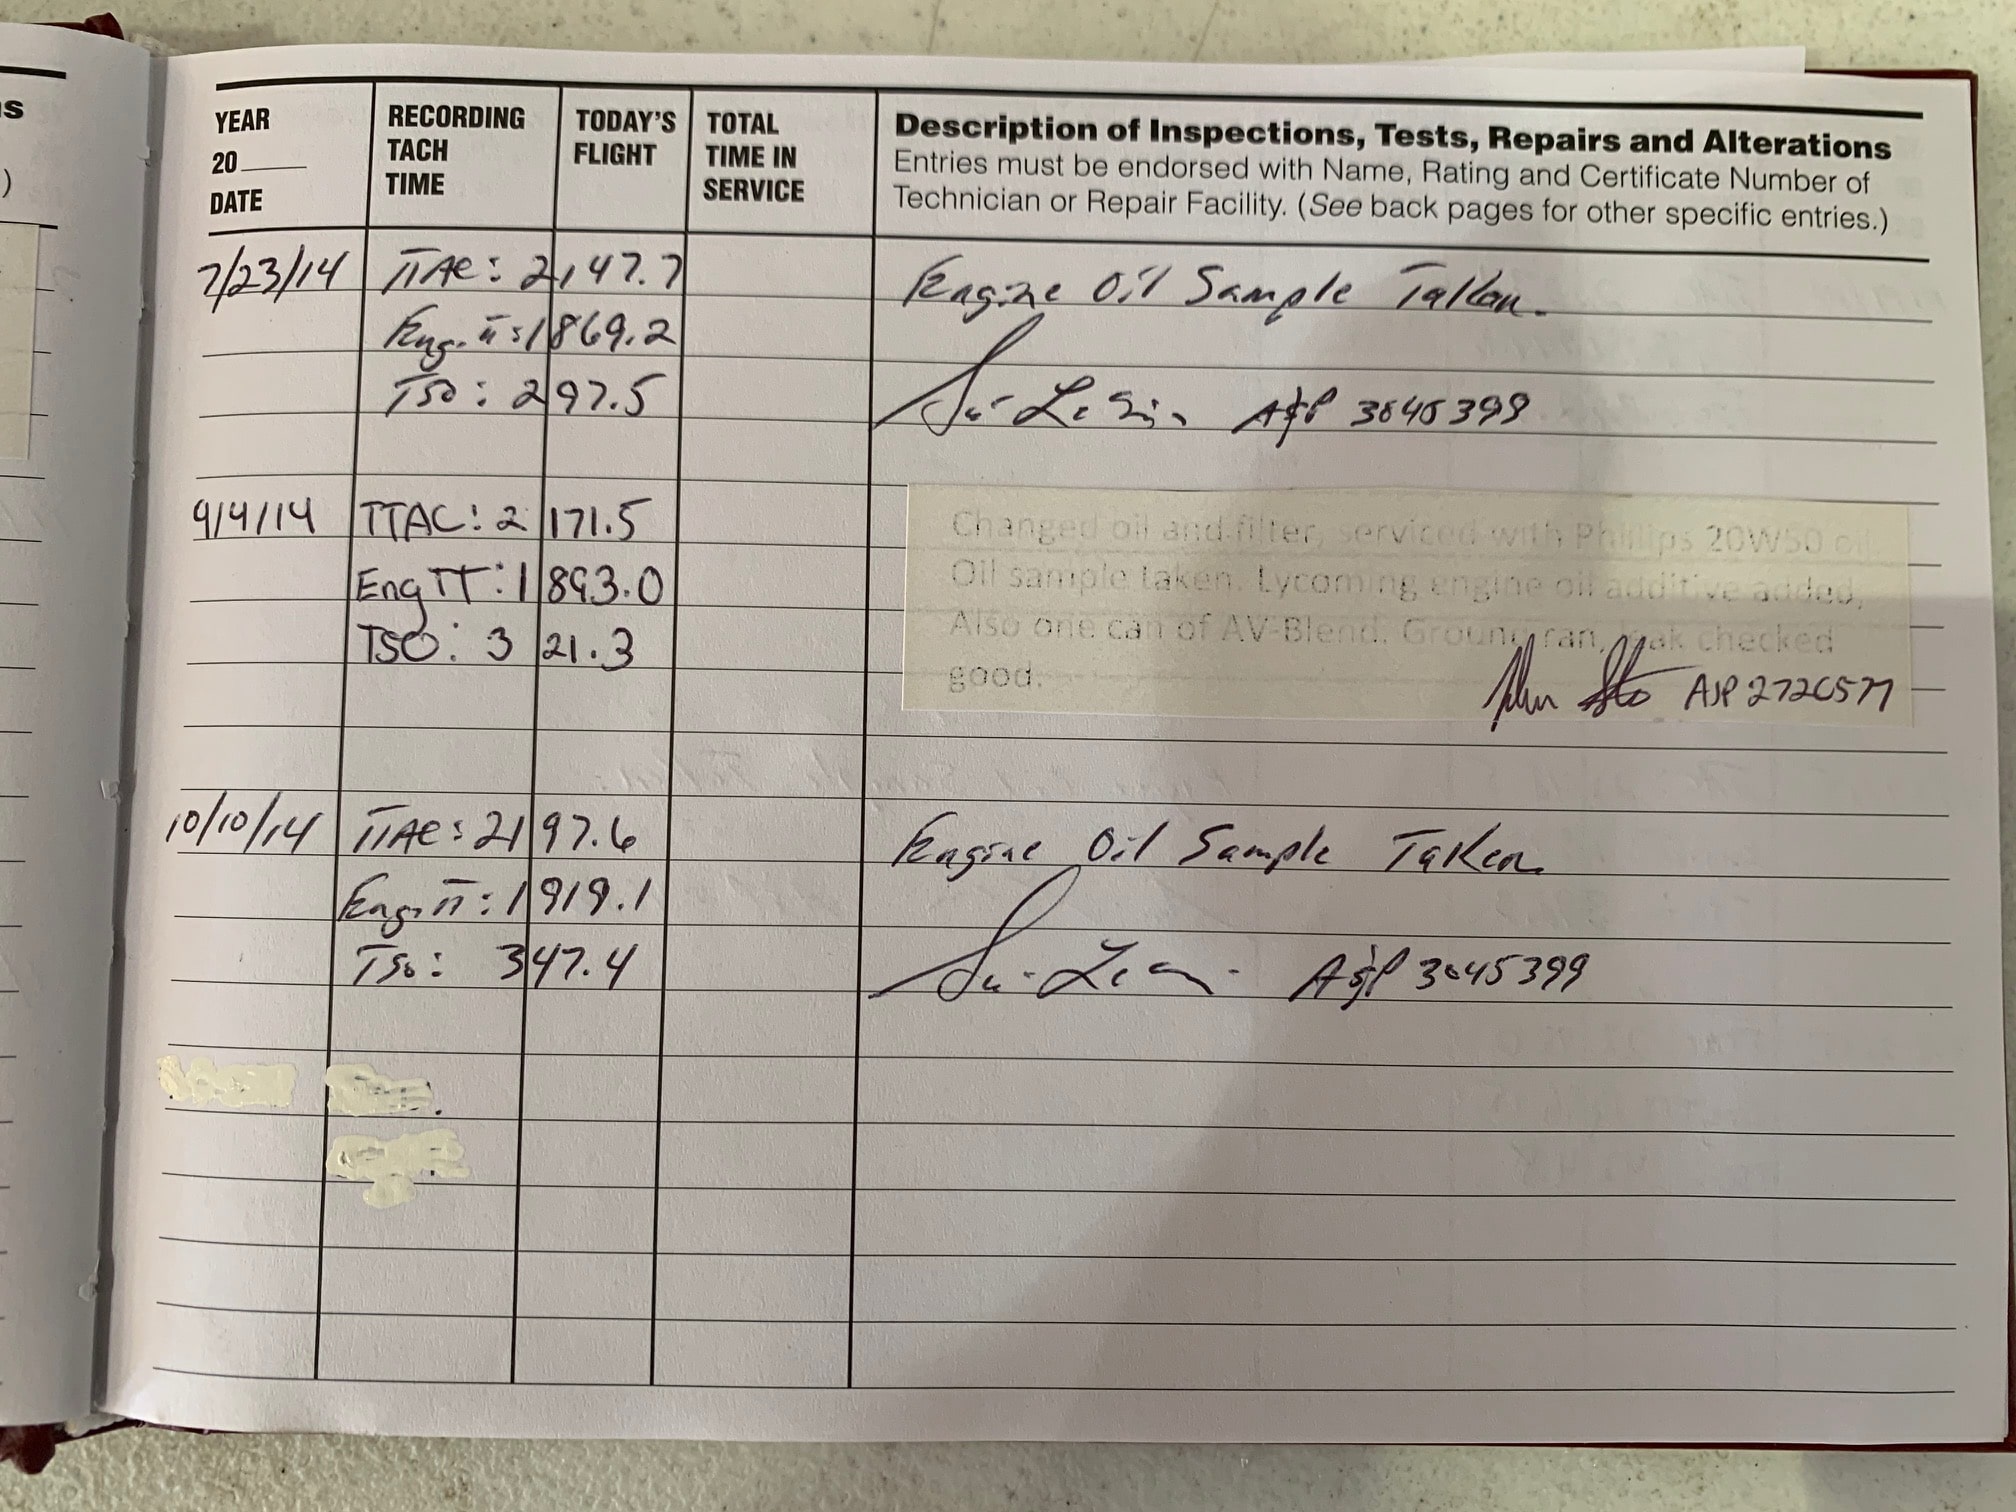 s
)
YEAR
20
DATE
RECORDING
TACH
TIME
TODAY'S
FLIGHT
TOTAL
TIME IN
SERVICE
Description of Inspections, Tests, Repairs and Alterations
Entries must be endorsed with Name, Rating and Certificate Number of
Technician or Repair Facility. (See back pages for other specific entries.)
7/23/14 TTAC: 2147.7 Engine Oil Sample Taken.
Eng. TT: 1869.2
TSO: 297.5 A&P 3045399
9/4/14 TTAC: 2171.5 Changed oil and filter, serviced with Phillips 20W50 oil.
Eng TT: 1893.0 Oil sample taken. Lycoming engine oil additive added,
TSO: 321.3 Also one can of AV-Blend. Ground ran, leak checked
good. John A&P 2726577
10/10/14 TTAC: 2197.6 Engine Oil Sample Taken
Eng. TT: 1919.1
TSO: 347.4 A&P 3045399